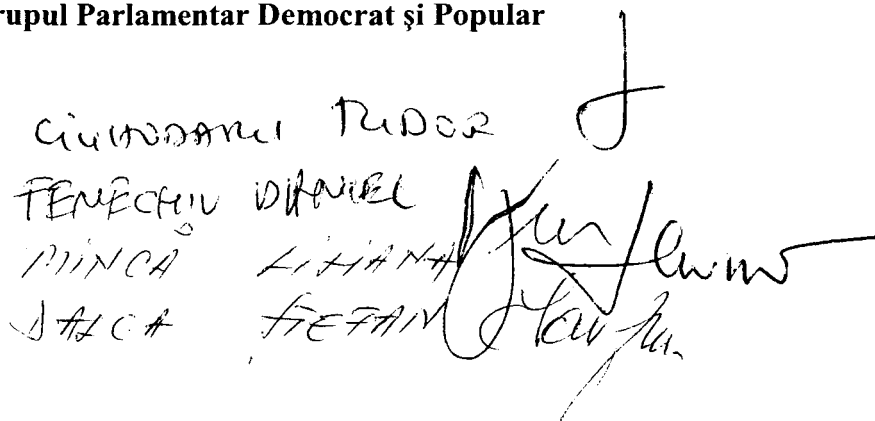 rupul Parlamentar Democrat şi Popular
CIUHODARU TUDOR
FENECHIU DANIEL
MINCĂ LILIANA
DALCA ŞTEFAN